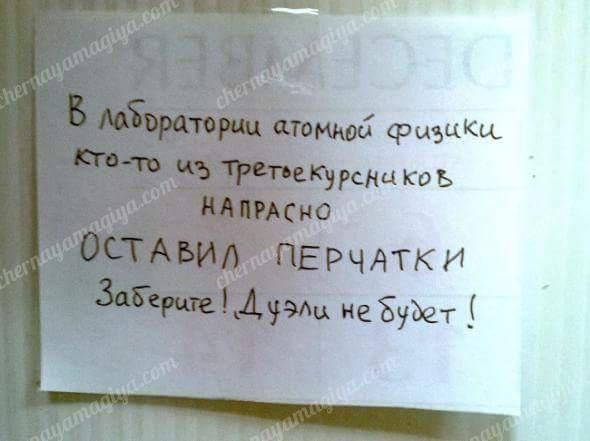 DECEMBER
В лаборатории атомной физики
кто-то из третьекурсников
НАПРАСНО
ОСТАВИЛ ПЕРЧАТКИ
Заберите! Дуэли не будет!
chernayamagiya.com